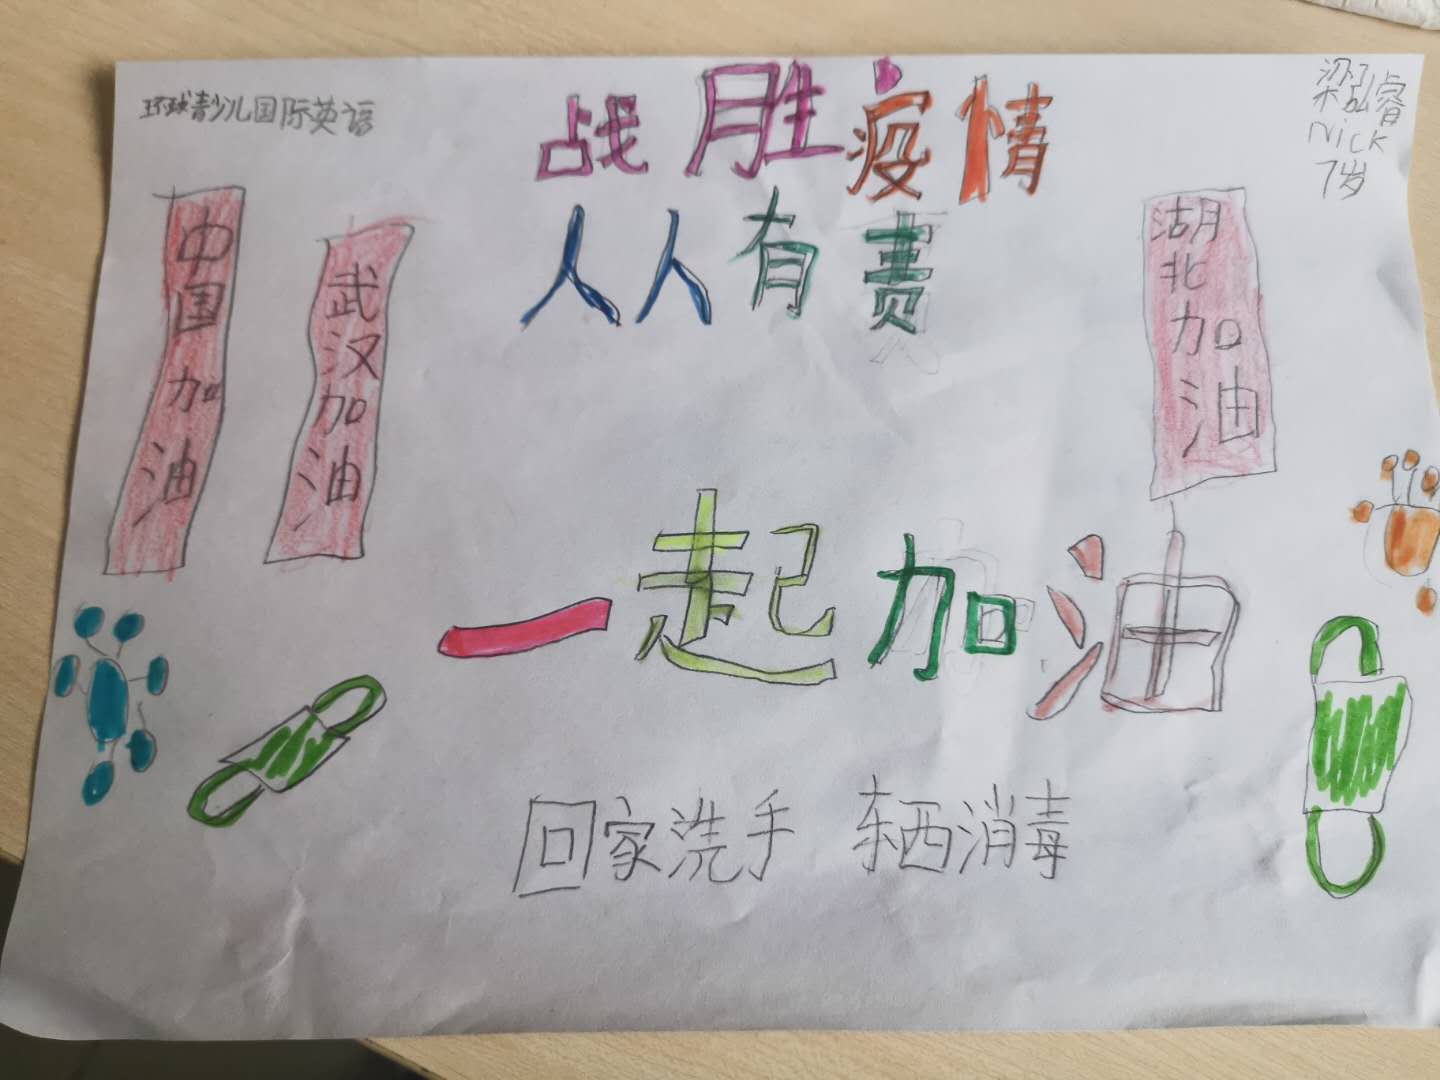 环球青少儿国际英语
战胜疫情
人人有责
梁弘睿
Nick
7岁
中国加油
武汉加油
湖北加油
一起加油
回家洗手 东西消毒